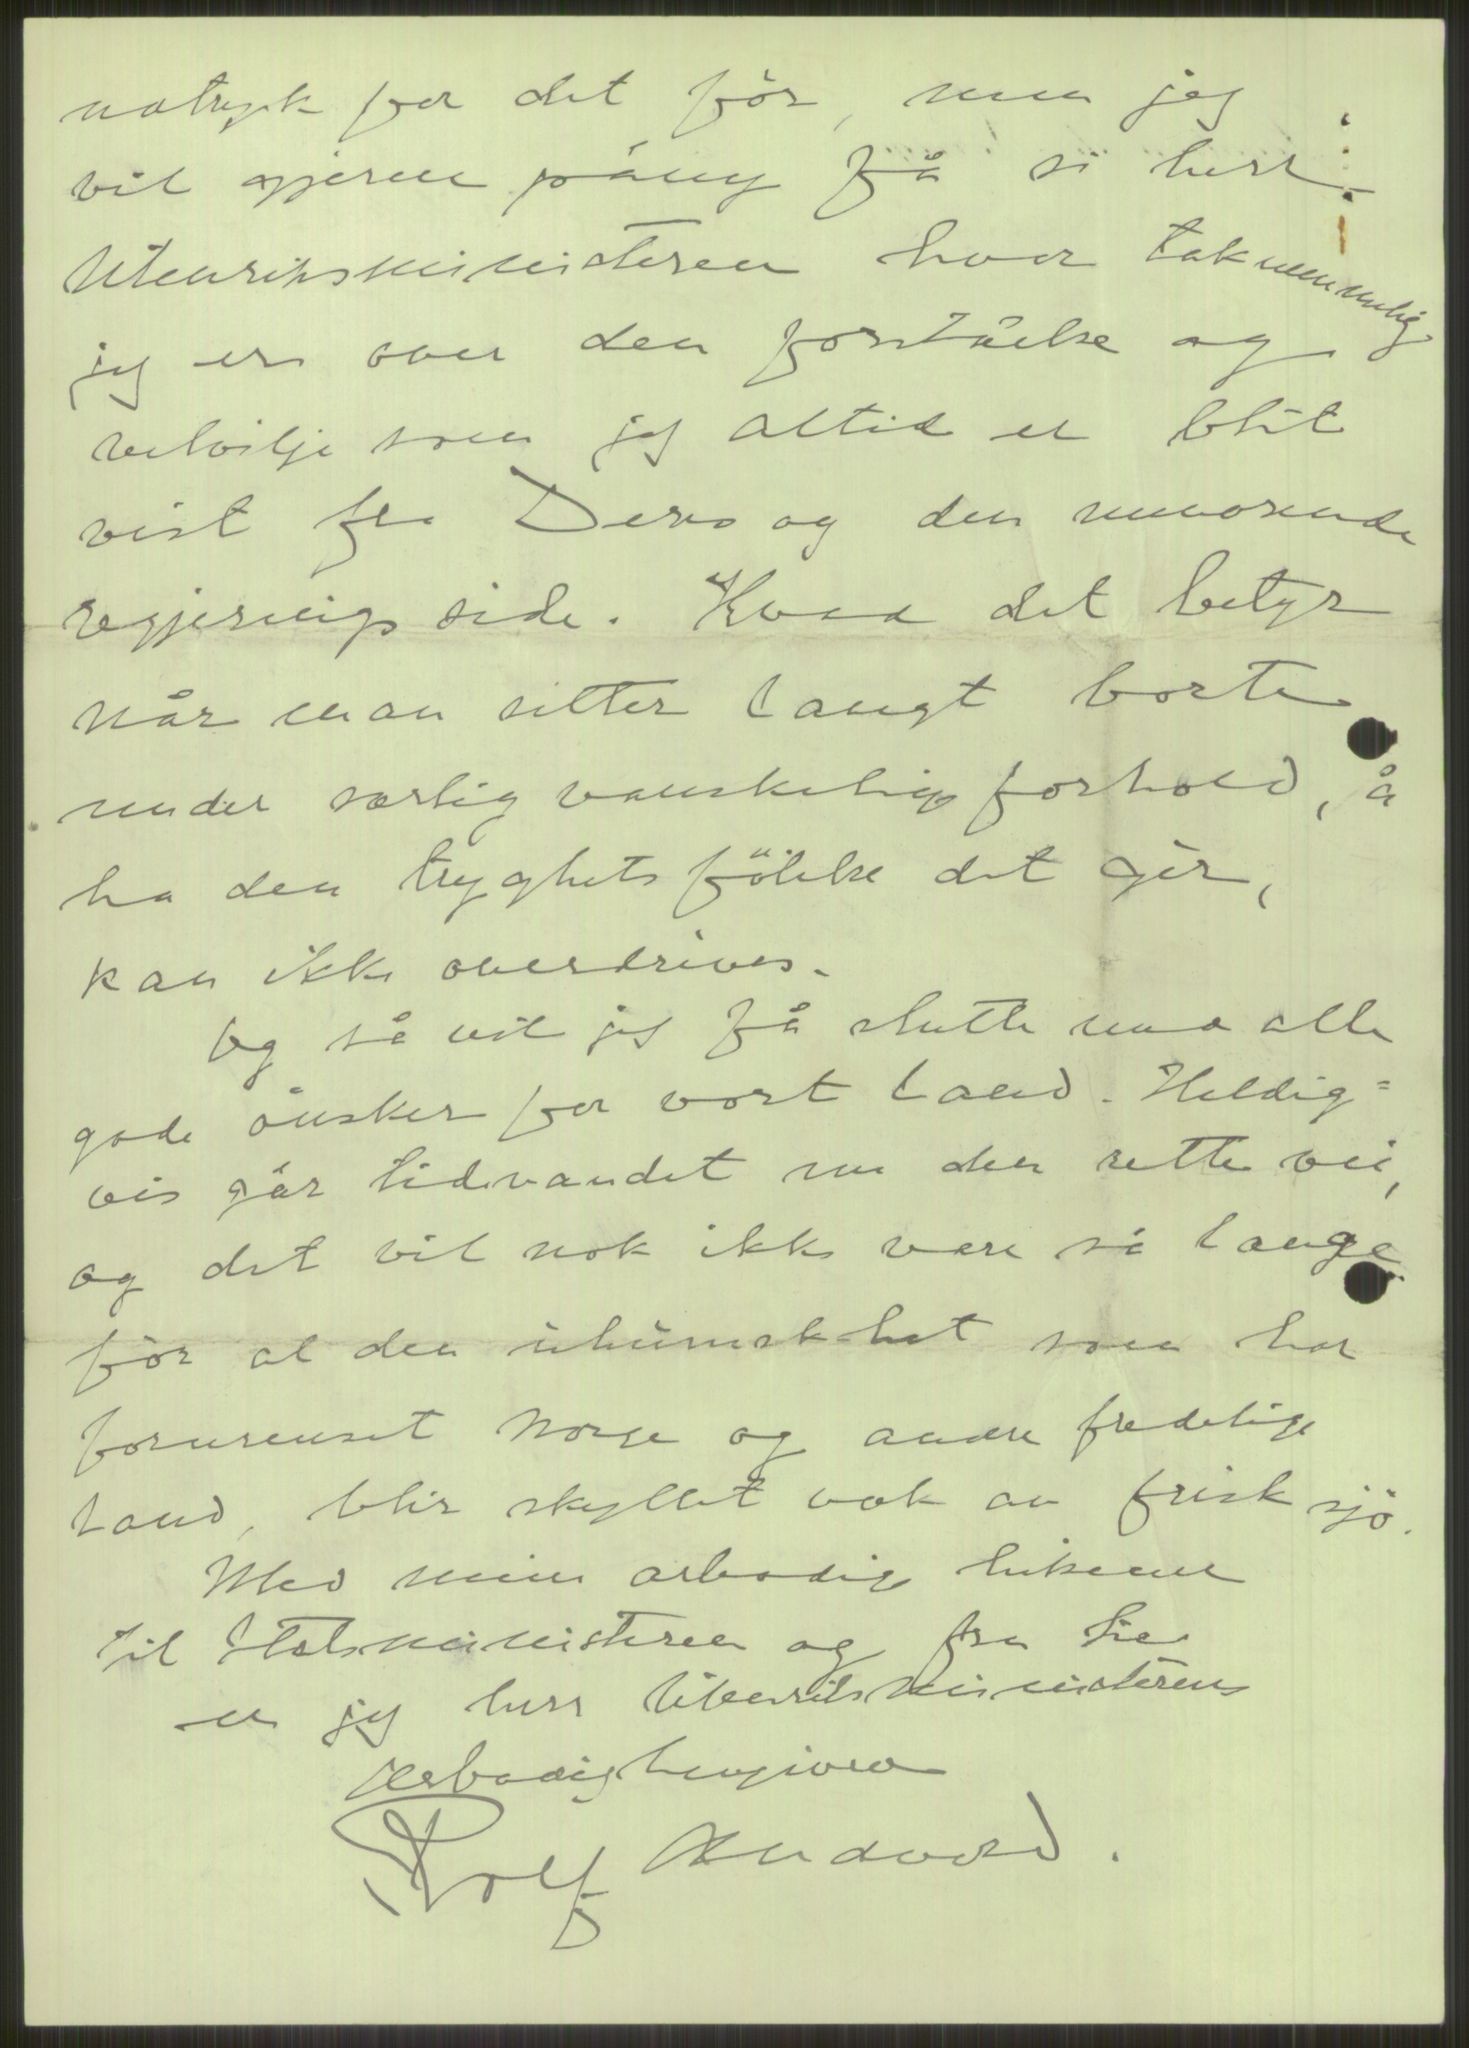 uttryk for det før, men jeg
vil gjerne påny få si herr
Utenriksministeren hvor taknemmelig
jeg er over den forståelse og
velvilje som jeg altid er blit
vist fra Deres og den nuværende
regjerings side. Hvad det betyr
når man sitter langt borte
under særlig vanskelige forhold, å
ha den tryghetsfölelse det gir,
kan ikke overdrives.
Og så vil jeg få slutte med alle
gode önsker for vort land. Heldig=
vis går tidevandet nu den rette vei,
og det vil nok ikke være så lange
för al den uhumskhet som har
forurenset Norge og andre fredelige
land, blir skyllet væk av frisk sjö.
Med min ærbødige hilsener
til Statsministeren og fru Lie
er jeg herr Utenriksministerens
ærbødig hengivne
Rolf Andvord.